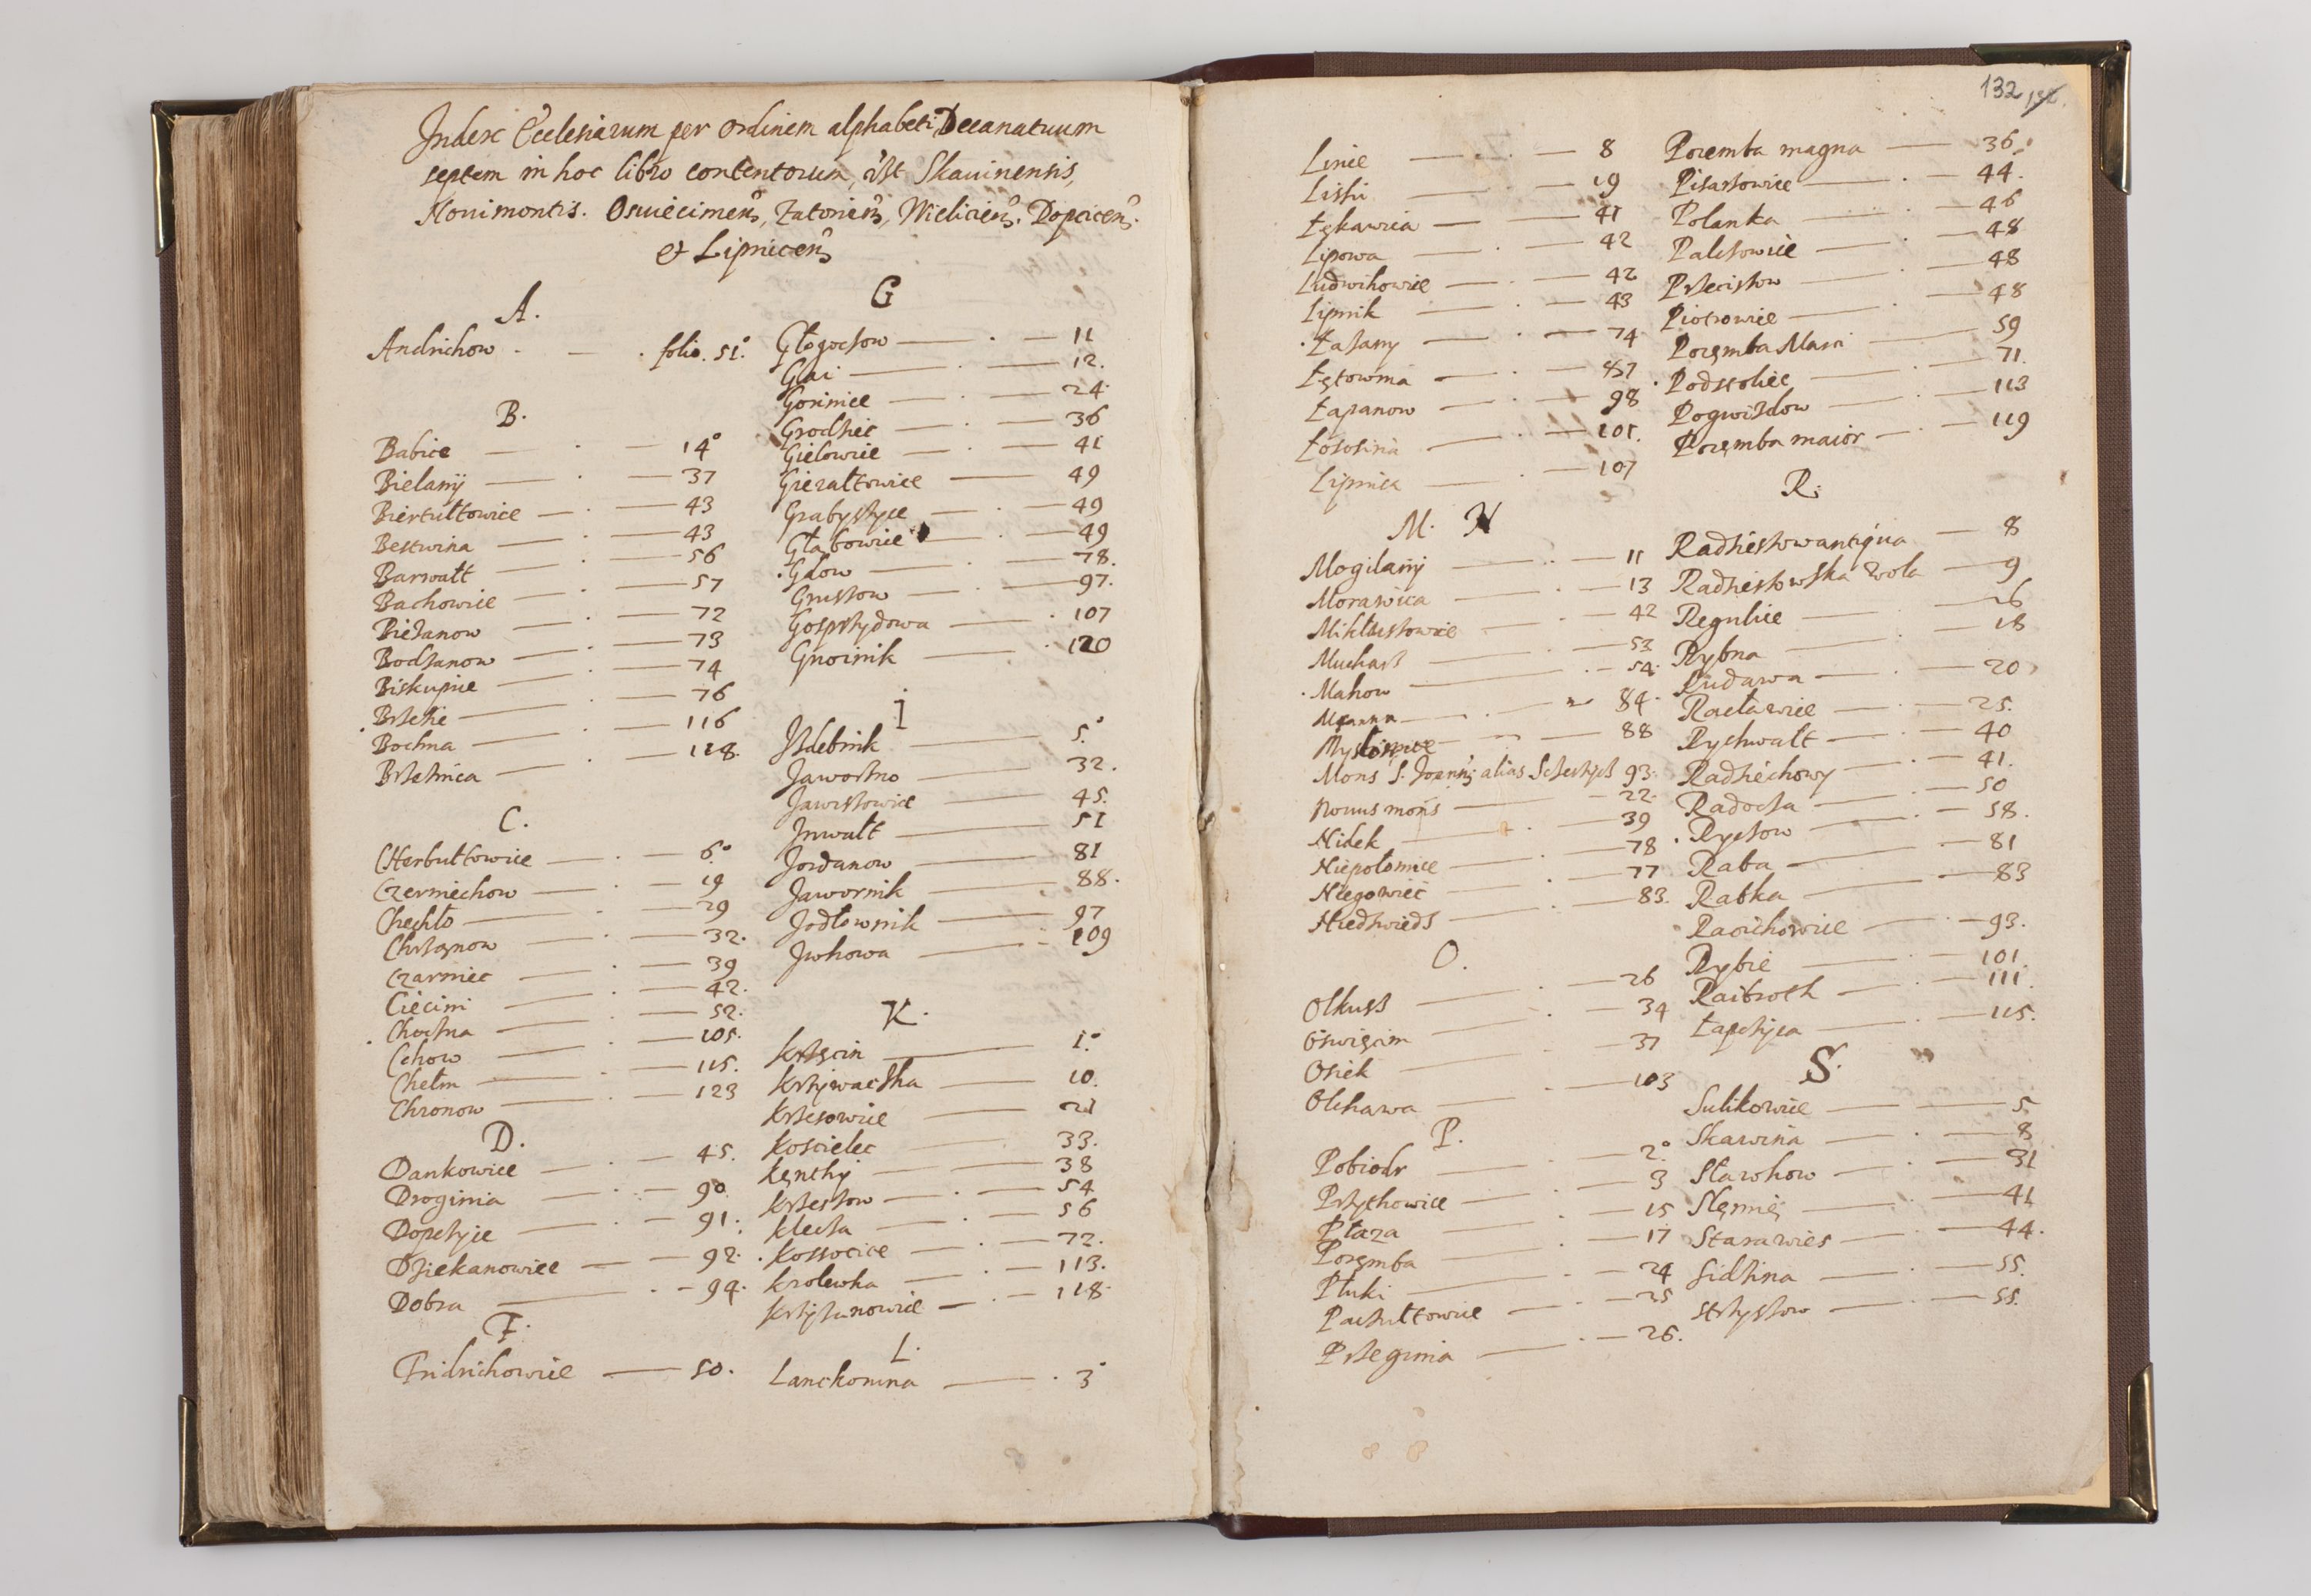 Index Ecclesiarum per Ordinem alphabeti Decanatuum
septem in hoc libro contentorum, Skauinensis,
Nouimontis. Oswiecimens, Zatoriens, Wieliciens. Dopcicens.
et Lipnicens
A.
Andrichow folio. 51.
B.
Babice 14
Bielany 37
Biertultowice 43
Bestwina 43
Barwałt 56
Bachowice 57
Bieżanow 72
Bodzanow 73
Biskupice 74
Brzezie 76
Bochna 116
Brzeznica 118.
C.
Cherbułtowice 6.
Czerniechow 19
Chechło 29
Chrzanow 32.
Czarniec 39
Ciecini 42.
Chocżna 52.
Cihow 105.
Chełm 115.
Chronow 123
D.
Dankowice 45.
Droginia 90
Dopczyce 91.
Dziekanowice 92.
Dobra 94.
F.
Fridrichowice 50.
G
Głogoczow 11
Gai 12.
Gorinice 24
Grodziec 36
Gielowice 41
Gierałtowice 49
Grabyszyce 49
Głąbowice 49
Gdow 78.
Gruszow 97.
Gosprzydowa 107
Gnoinik 120
I
Izdebnik 5.
Jaworzno 32.
Jawiszowice 45.
Inwałt 51
Jordanow 81
Jawornik 88.
Jodłownik 97
Iwkowa 109
K.
Krzęcin 1.
Krzywaczka 10.
Krzesowice 21
Koscielec 33.
Kęnthy 38
Krzeszow 54
Klecza 56
Kossocice 72.
Krolewka 113.
Krzyżanowice 118.
L.
Lanckorona 3
132
Linie 8
Liszki 19
Łękawica 41
Lipowa 42
Ludwikowice 42
Lipnik 43
Łazany 74
Łętownia 87
Łapanow 98
Łososina 101.
Lipnica 107
M. N
Mogilany 11
Morawica 13
Mikluszowice 42
Mucharz 53
Makow 54.
Mszana 84.
Myslenice 88
Mons S. Joannis alias Sczerzyc 93.
Nouus mons 22.
Nidek 39
Niepołomice 78
Niegowiec 77
Niedzwiedz 83.
O.
Olkusz 26
Oswięcim 34
Osiek 37
Olchawa 103
P.
Pobiedr 2.
Przytkowice 3
Płaza 15
Poręmba 17
Płuki 24
Paczułtowice 25
Przeginia 26.
Poremba magna 36
Pisarzowice 44.
Polanka 46
Palczowice 48
Przeciszow 48
Piotrowice 48
Poręmba Mari 59
Podstolice 71.
Pogwizdow 113
Poręmba maior 119
R.
Radzieszow antiqua 8
Radzieszowska Wola 9
Regulice 16
Rybna 18
Rudawa 20
Racławice 25.
Rychwałt 40
Radziechowy 41.
Radocza 50
Ryczow 58.
Raba 81
Rabka 83
Raciechowice 93.
Rybie 101
Raibroth 111.
Łapczyca 115.
S.
Sulkowice 5
Skawina 8
Stawkow 31
Slęmię 41
Starawies 44.
Sidzina 55.
Strzyszow 55.